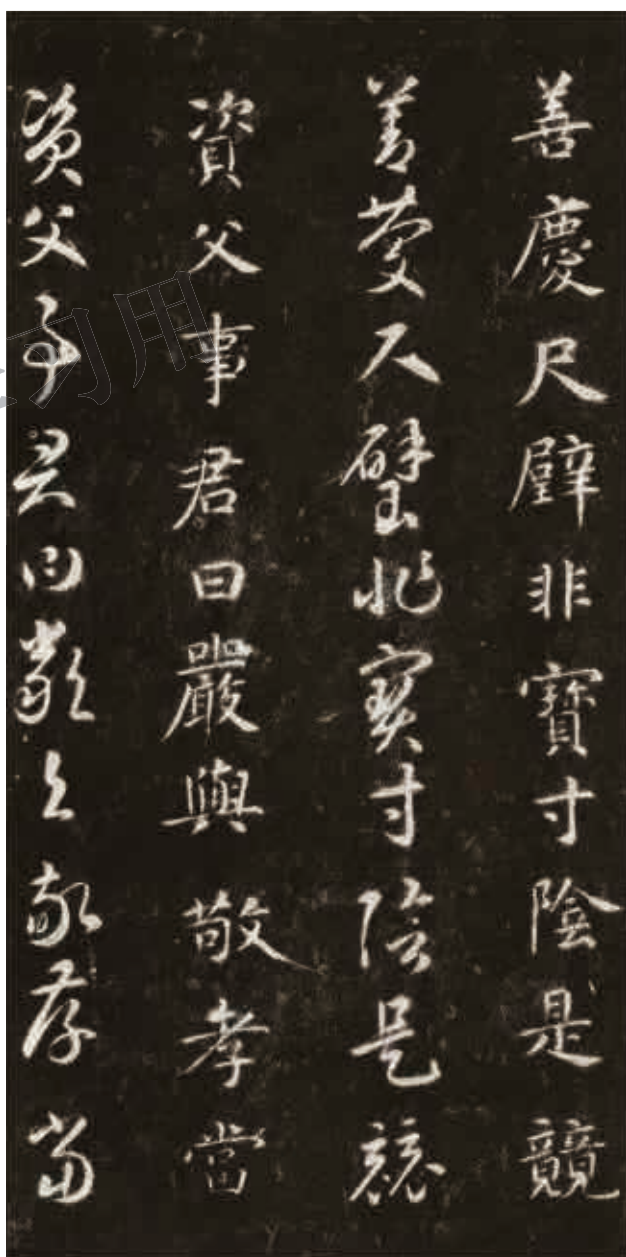 善慶尺璧非寶寸陰是競
善慶尺璧非寶寸陰是競
資父事君曰嚴與敬孝當
資父事君曰嚴與敬孝當
习用